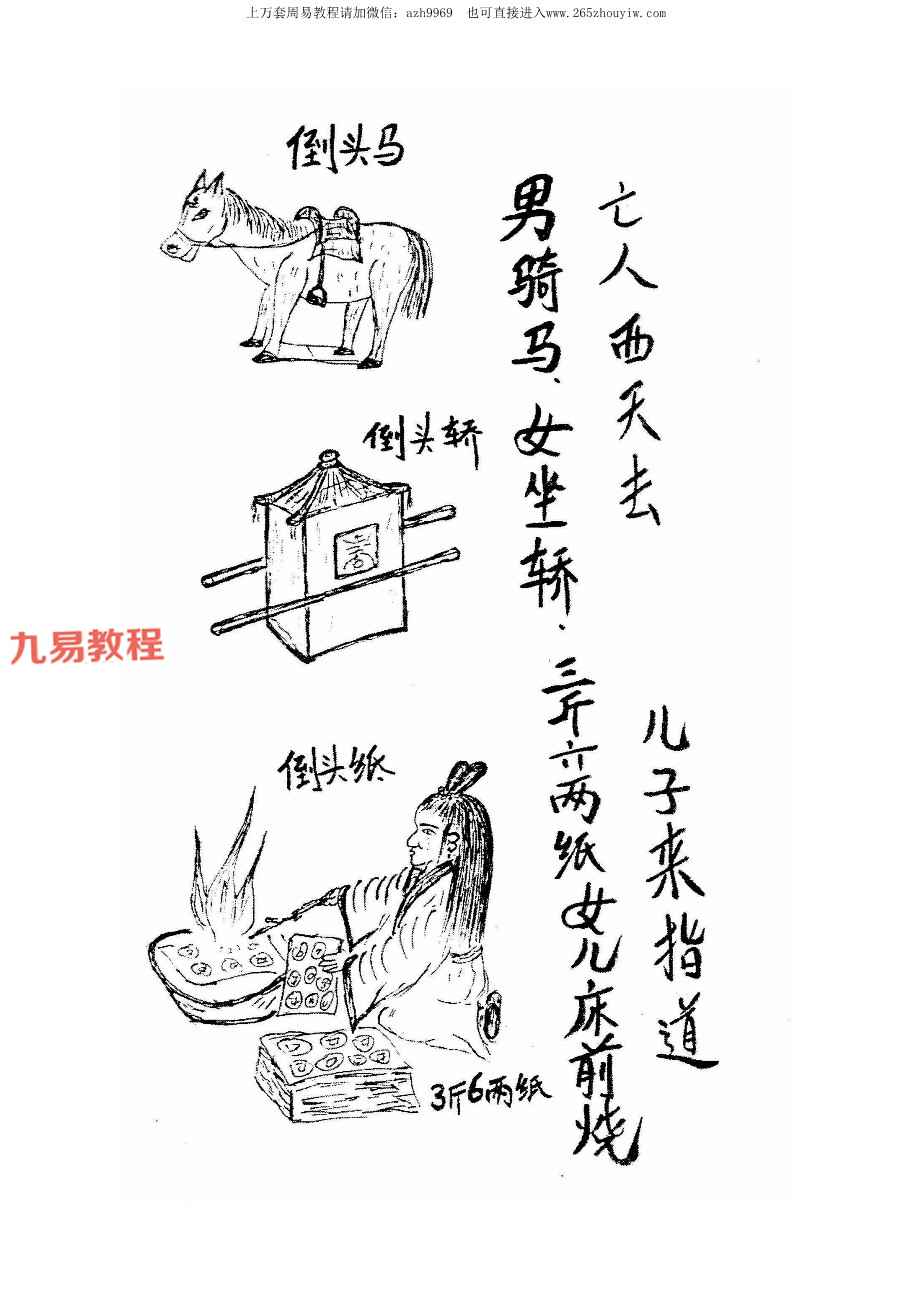 上万套周易教程请加微信：azh9969 也可直接进入www.265zhouyiw.com
倒头马
亡人西天去 儿子来指道
男骑马、女坐轿、三斤六两纸女儿床前烧
倒头轿
九易教程
倒头纸
3斤6两纸